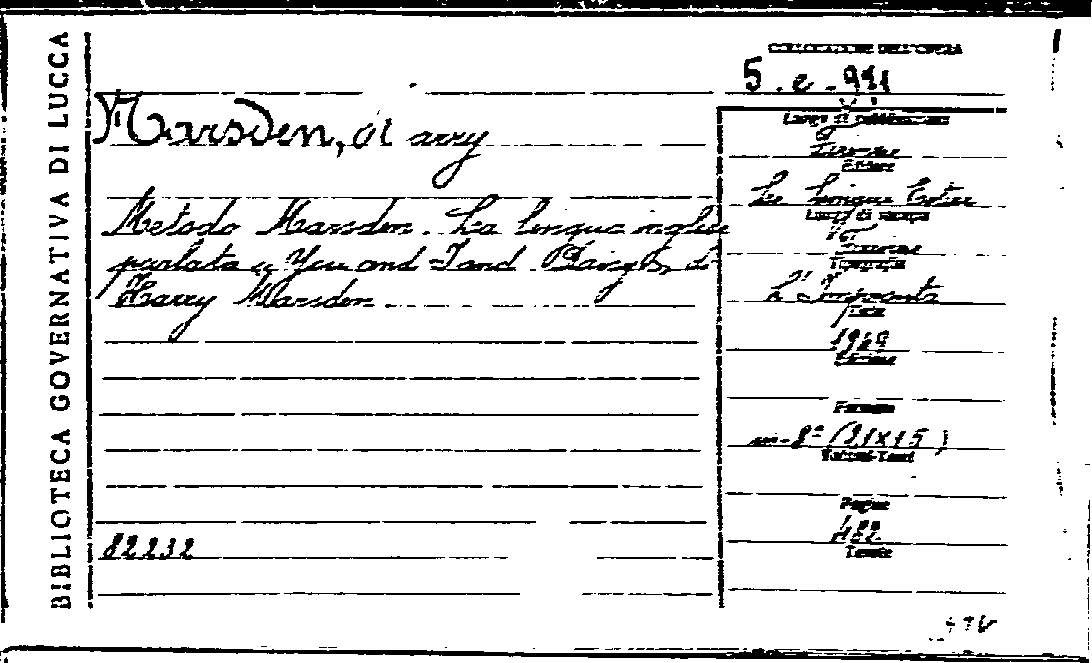 BIBLIOTECA GOVERNATIVA DI LUCCA
COLLOCAZIONE DELL'OPERA
5. e. 991
Marsden, Harry
Metodo Marsden. La lingua inglese
parlata "You and I and
Harry Marsden.
82232
Luogo di pubblicazione
Firenze
Editore
Le Lingue Estere
Luogo di stampa
Firenze
Tipografia
L'Impronta
Data
1969
Edizione
Formato
in-8° (21x15)
Volumi-Tomi
Pagine
482
Tavole